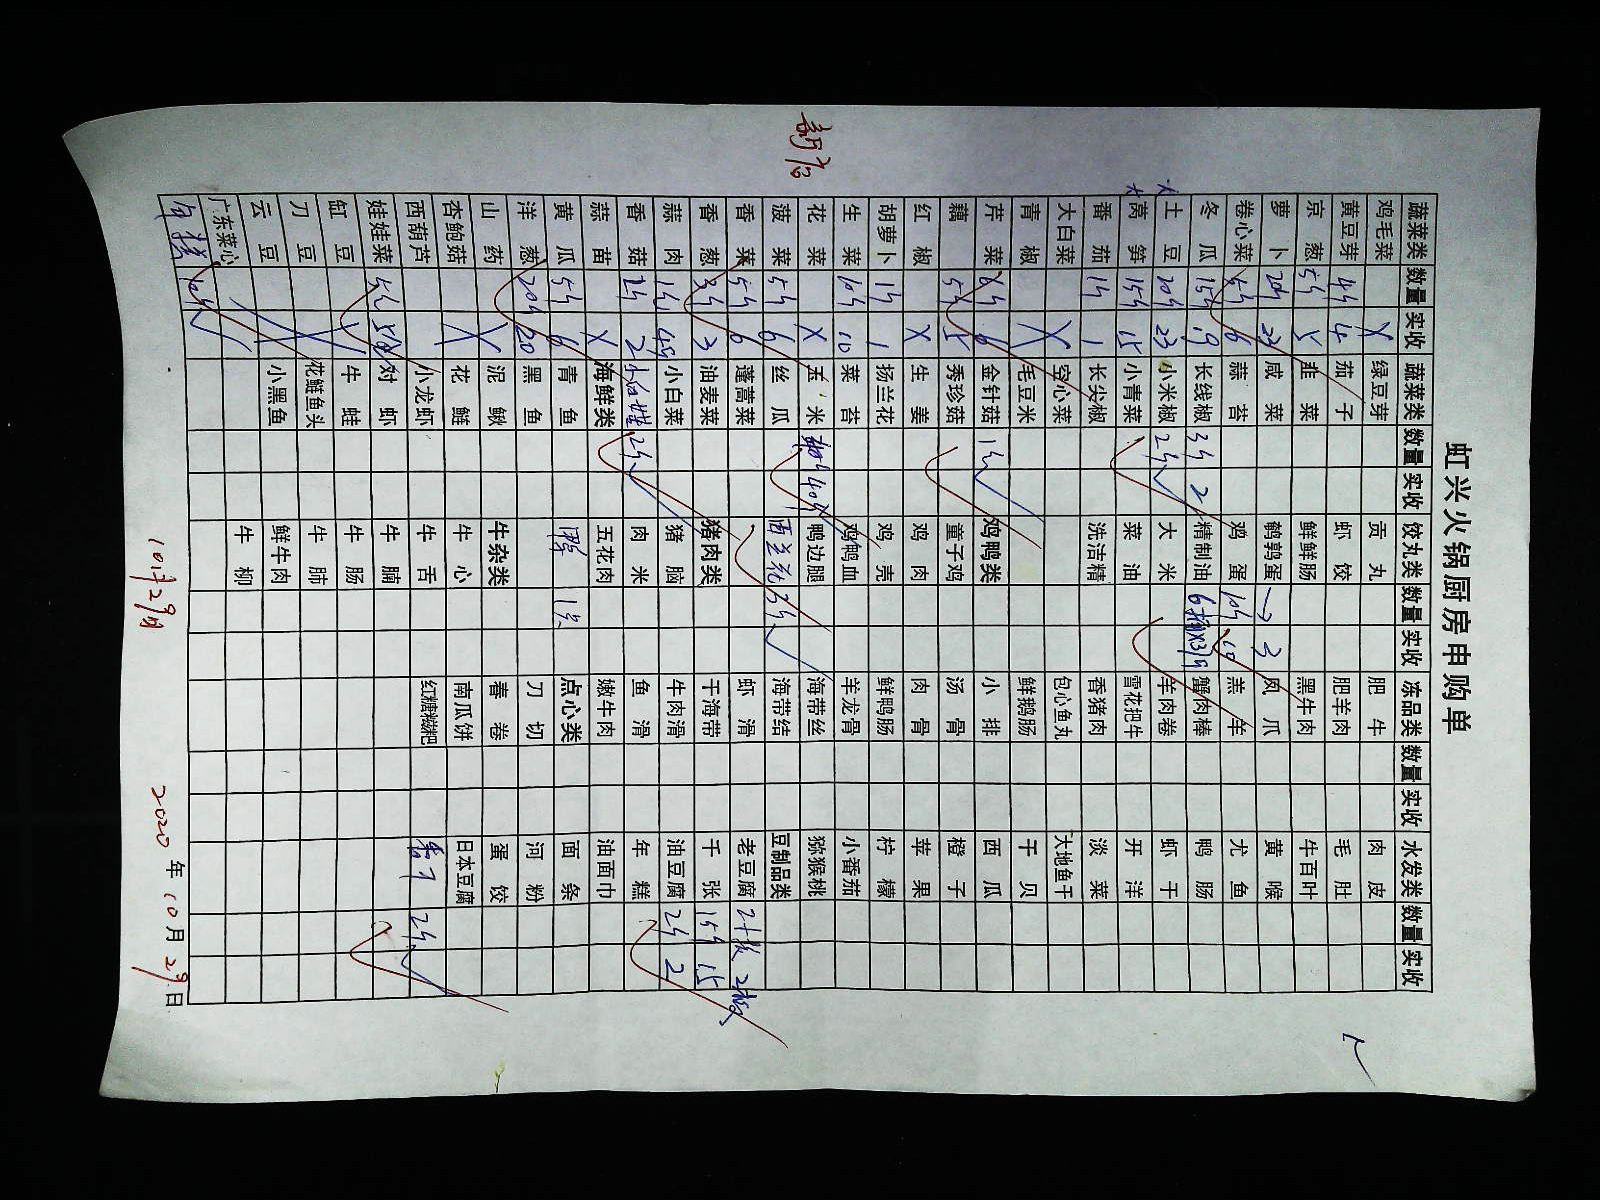 虹兴火锅厨房申购单
蔬菜类 数量 实收 蔬菜类 数量 实收 饺丸类 数量 实收 冻品类 数量 实收 水发类 数量 实收
鸡毛菜 X 绿豆芽 贡丸 肥牛 肉皮
黄豆芽 4斤 4 茄子 虾饺 肥羊肉 毛肚
京葱 5斤 5 韭菜 鲜鲜肠 黑牛肉 牛百叶
萝卜 20斤 22 咸菜 鹌鹑蛋 → 3 凤爪 黄喉
卷心菜 5斤 6 蒜苔 鸡蛋 10斤 10 羔羊 尤鱼
冬瓜 15斤 19 长线椒 3斤 2 精制油 蟹肉棒 鸭肠
土豆 20斤 23 小米椒 2斤 大米 羊肉卷 虾干
莴笋 15斤 15 小青菜 菜油 雪花把牛 开洋
番茄 1斤 1 长尖椒 洗洁精 香猪肉 淡菜
大白菜 X 空心菜 包心鱼丸 大地鱼干
青椒 X 毛豆米 鲜鹅肠 干贝
芹菜 6斤 6 金针菇 1斤 鸡鸭类 小排 西瓜
藕 5斤 5 秀珍菇 童子鸡 汤骨 橙子
红椒 X 生姜 鸡肉 肉骨 苹果
胡萝卜 1斤 1 扬兰花 鸡壳 鲜鸭肠 柠檬
生菜 10斤 10 菜苔 鸡鸭血 羊龙骨 小番茄
花菜 X 玉米 40斤 鸭边腿 海带丝 猕猴桃
菠菜 5斤 6 丝瓜 西兰花 3斤 海带结 豆制品类
香菜 5斤 6 蓬蒿菜 虾滑 老豆腐 2板
香葱 3斤 3 油麦菜 猪肉类 干海带 千张 15斤 15
蒜肉 小白菜 猪脑 牛肉滑 油豆腐 2斤 2
香菇 2斤 2 2斤 肉米 鱼滑 年糕
蒜苗 X 海鲜类 五花肉 嫩牛肉 油面巾
黄瓜 5斤 6 青鱼 鸭 1只 点心类 面条
洋葱 20斤 20 黑鱼 刀切 河粉
山药 X 泥鳅 牛杂类 春卷 蛋饺
杏鲍菇 X 花鲢 牛心 南瓜饼 日本豆腐
西葫芦 小龙虾 牛舌 红糖糍粑 香干 2斤
娃娃菜 5斤 对虾 牛腩
缸豆 X 牛蛙 牛肠
刀豆 X 花鲢鱼头 牛肺
云豆 小黑鱼 鲜牛肉
广东菜心 牛柳
10斤
10月29日
2020年10月29日